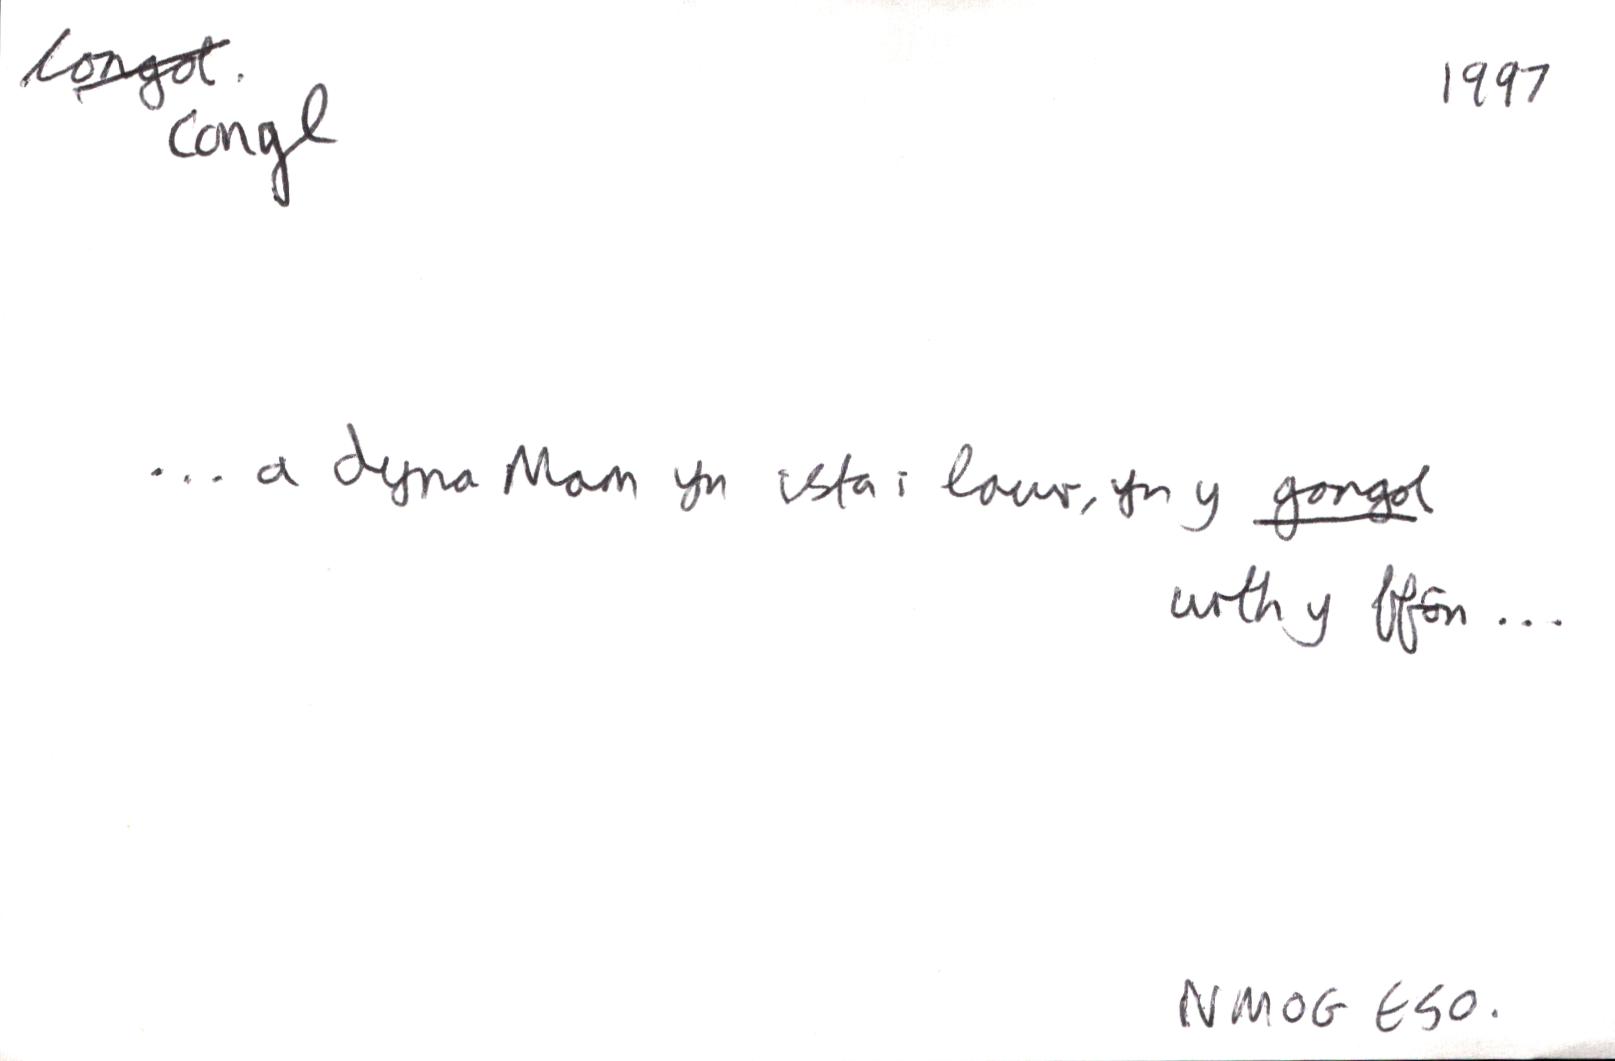 congol.
congl
1997
... a dyna Mam yn ista i lawr, yn y gongol
wrth y ffôn ...
NMOG ESO.